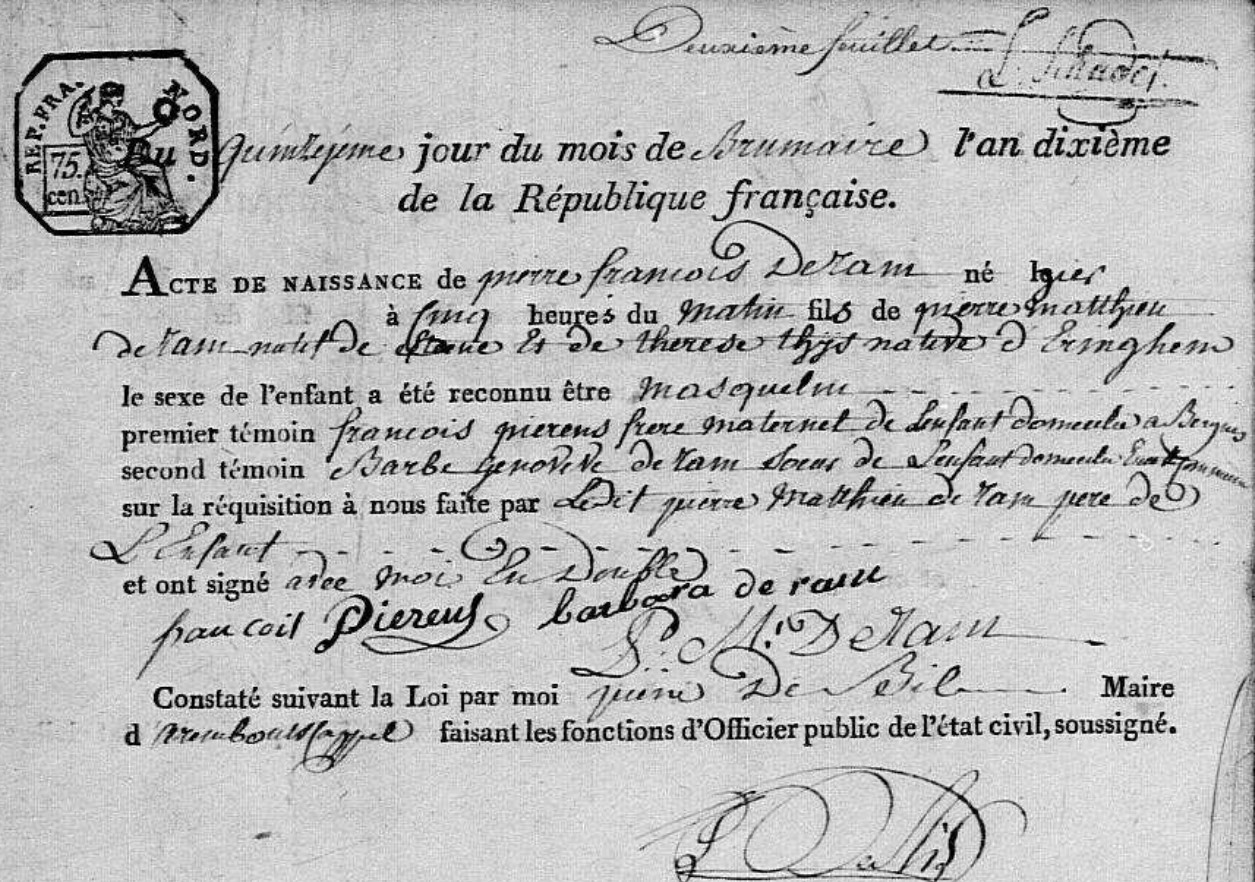 Deuxième feuillet
REP. FRA. NORD.
75. cen.
Du Quinzieme jour du mois de Brumaire l'an dixième
de la République française.
ACTE DE NAISSANCE de pierre francois DeRam né hier
à Cinq heures du matin fils de pierre matthieu
de ram natif de et de therese thys native d'Eringhem
le sexe de l'enfant a été reconnu être masquelin
premier témoin francois pierens frere maternel de Lenfant domicilié a Bergues
second témoin Barbe genoveve de ram soeur de L'enfant
sur la réquisition à nous faite par Ledit pierre Matthieu de ram pere de
L'Enfant
et ont signé avec moi En Double
francois Pierens barbara de ram
P: M: DeRam
Constaté suivant la Loi par moi pierre De Bil Maire
d faisant les fonctions d'Officier public de l'état civil, soussigné.